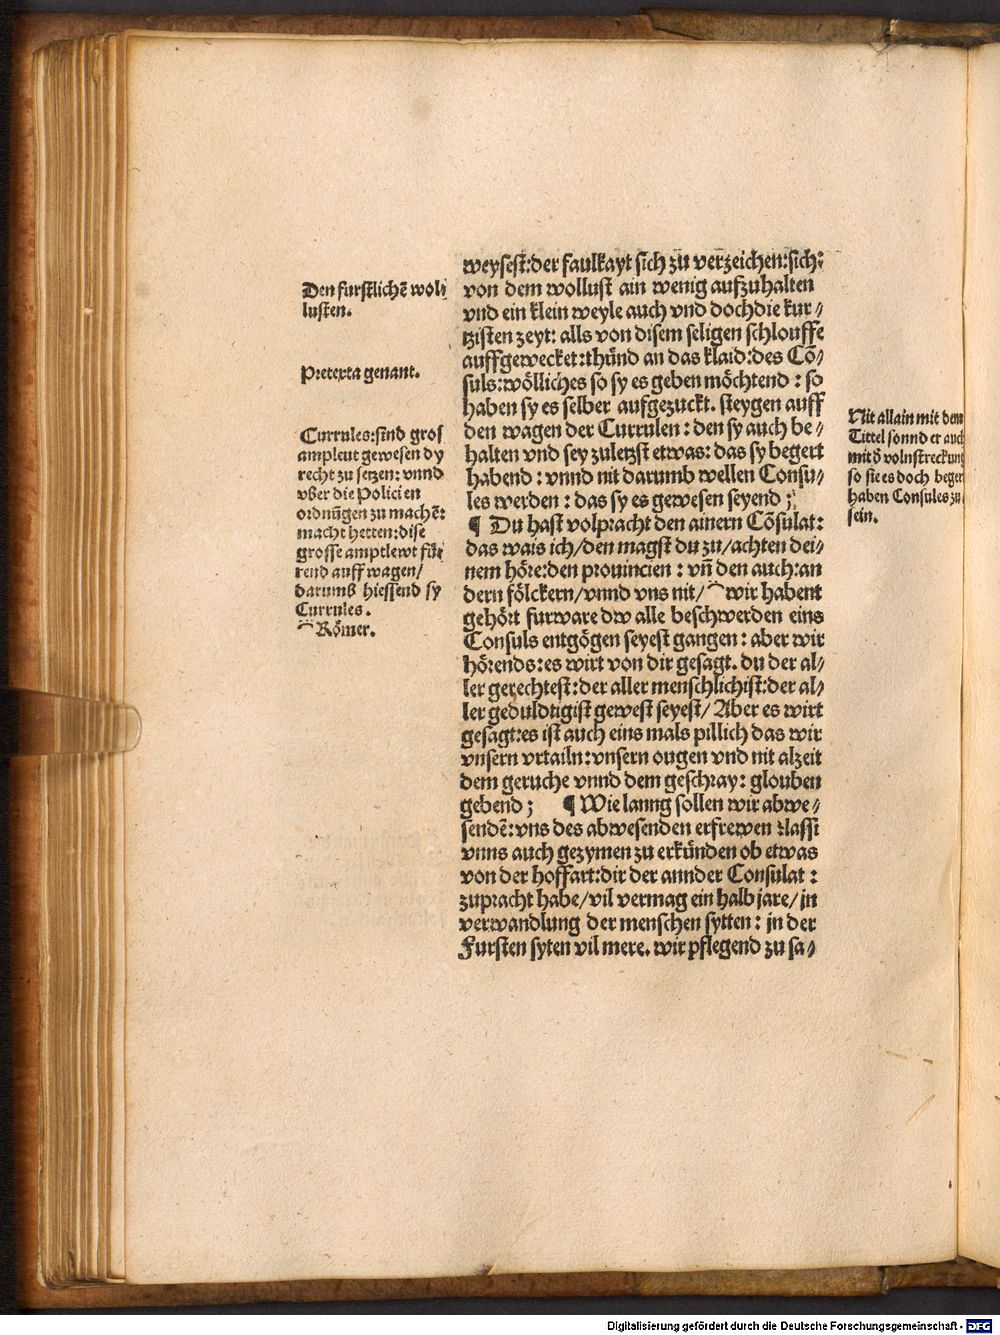 Den furstlichē wol⸗
lusten.
Pretexta genant.
Currules:sind gros
ampleut gewesen dy
recht zu setzen: vnnd
vber die Policien
ordnūgen zu machē:
macht hetten:dise
grosse amptlewt fůr
rend auff wagen/
darumb hiessend sy
Currules.
⁀Rômer.
weysest:der faulkayt sich zů verzeichen:sich:
von dem wollust ain wenig aufzuhalten
vnd ein klein weyle auch vnd dochdie kur⸗
tzisten zeyt: alls von disem seligen schlouffe
auffgewecket:thůnd an das klaid:des Cō⸗
suls:wôlliches so sy es geben môchtend : so
haben sy es selber aufgezuckt. steygen auff
den wagen der Currulen : den sy auch be⸗
halten vnd sey zuletzst etwas: das sy begert
habend : vnnd nit darumb wellen Consu⸗
les werden : das sy es gewesen seyend ;
¶ Du hast volpracht den ainern Cōsulat:
das wais ich/den magst du zu/achten dei⸗
nem hôre:den prouincien : vn̄ den auch:an
dern fôlckern/vnnd vns nit/⁀wir habent
gehôrt furware dw alle beschwerden eins
Consuls entgôgen seyest gangen : aber wir
hôrends:es wirt von dir gesagt. du der al⸗
ler gerechtest:der aller menschlichist:der al⸗
ler geduldtigist gewest seyest/ Aber es wirt
gesagt:es ist auch eins mals pillich das wir
vnsern vrtailn:vnsern ougen vnd nit alzeit
dem geruche vnnd dem geschray: glouben
gebend ; ¶ Wie lanng sollen wir abwe⸗
sendē:vns des abwesenden erfrewen :lassz
vnns auch gezymen zu erkůnden ob etwas
von der hoffart:dir der annder Consulat :
zupracht habe/vil vermag ein halb jare/jn
verwandlung der menschen sytten : jn der
Fursten syten vil mere. wir pflegend zu sa⸗
Nit allain mit dem
Tittel sonnd er auch
mit ð volnstreckung
so sie es doch begert
haben Consules zu
sein.
Digitalisierung gefördert durch die Deutsche Forschungsgemeinschaft - DFG